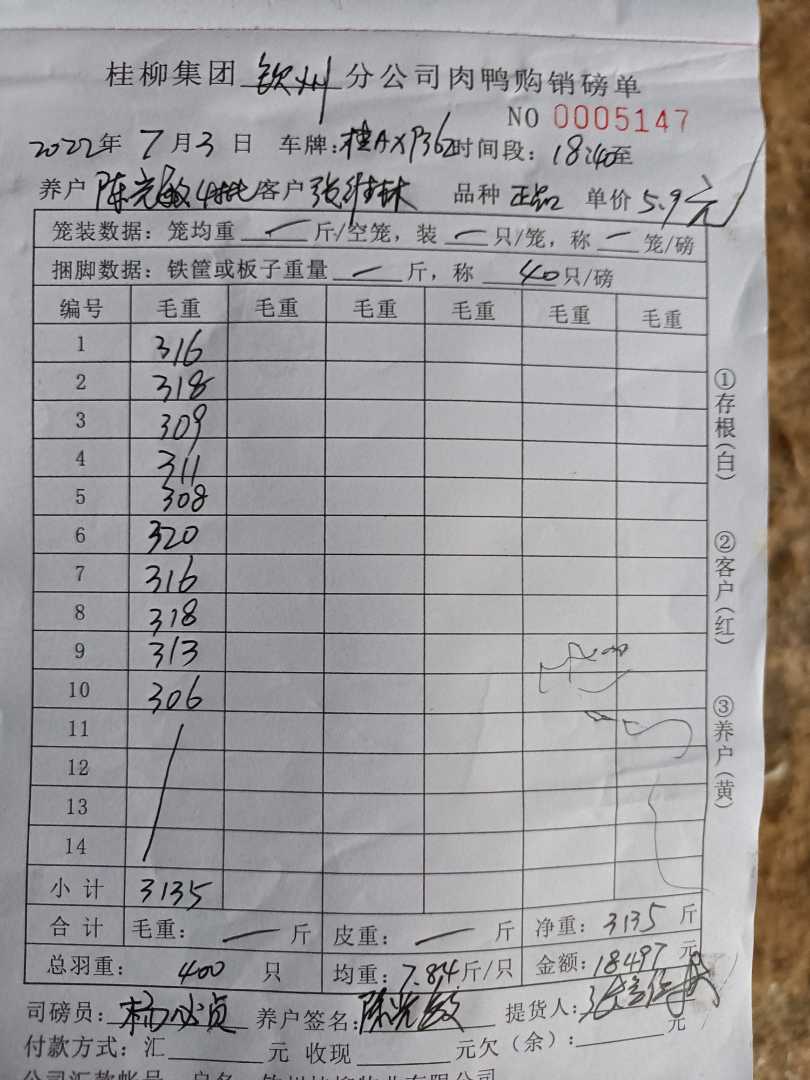 桂柳集团 钦州 分公司肉鸭购销磅单
NO 0005147
2022年 7月3日 车牌:桂AXP362时间段:18:40至
养户 陈光敏4批 客户 张 林 品种 正品 单价 5.9元
笼装数据:笼均重 — 斤/空笼,装 — 只/笼,称 — 笼/磅
捆脚数据:铁筐或板子重量 — 斤,称 40只/磅
编号 毛重 毛重 毛重 毛重 毛重 毛重
1 316
2 318
3 309
4 311
5 308
6 320
7 316
8 318
9 313
10 306
11
12
13
14
小计 3135
合计 毛重: — 斤 皮重: — 斤 净重: 3135 斤
总羽重: 400 只 均重:7.84斤/只 金额:18497元
司磅员: 养户签名:陈光敏 提货人:
付款方式:汇 元 收现 元欠(余): 元
公司汇款帐号 户名 钦州桂柳牧业有限公司
①存根(白)
②客户(红)
③养户(黄)